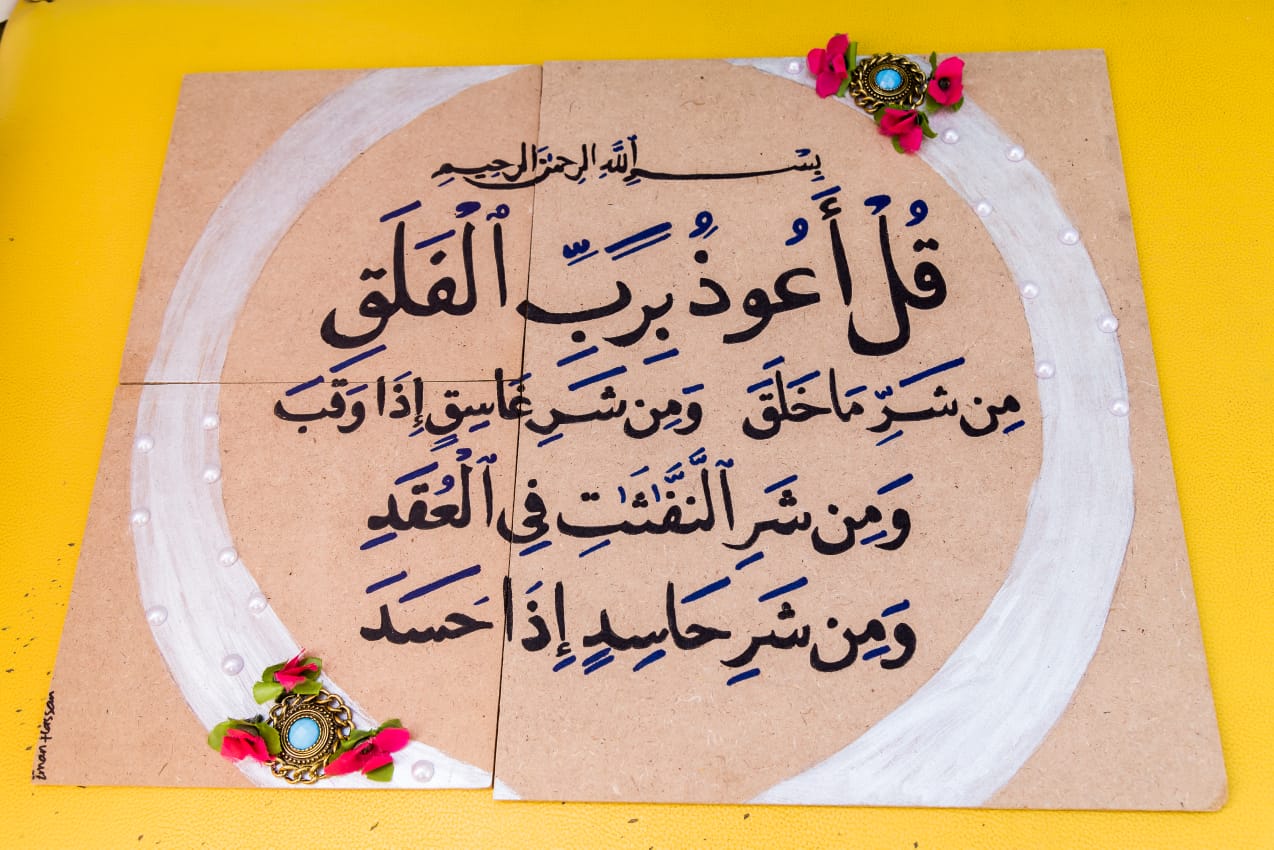 بِسْمِ اللَّهِ الرحمن الرحيم
قُلْ أَعُوذُ بِرَبِّ ٱلْفَلَقِ
مِن شَرِّ مَا خَلَقَ وَمِن شَرِ غَاسِقٍ إِذَا وَقَبَ
وَمِن شَرِ ٱلنَّفَّٰثَٰتِ فِي ٱلْعُقَدِ
وَمِن شَرِ حَاسِدٍ إِذَا حَسَدَ
Eman Hassan